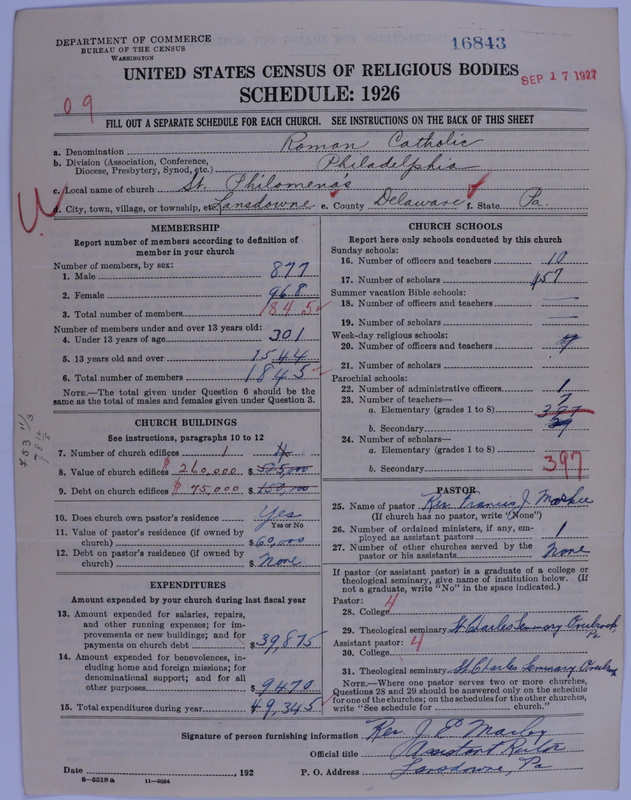 DEPARTMENT OF COMMERCE
BUREAU OF THE CENSUS
WASHINGTON
16843
UNITED STATES CENSUS OF RELIGIOUS BODIES
SEP 17 1927
SCHEDULE: 1926
09
FILL OUT A SEPARATE SCHEDULE FOR EACH CHURCH. SEE INSTRUCTIONS ON THE BACK OF THIS SHEET
a. Denomination Roman Catholic
b. Division (Association, Conference, Diocese, Presbytery, Synod, etc.) Philadelphia
c. Local name of church St. Philomena's
d. City, town, village, or township, etc. Lansdowne e. County Delaware f. State Pa.
MEMBERSHIP
Report number of members according to definition of
member in your church
Number of members, by sex:
1. Male 877
2. Female 968
3. Total number of members 1845
Number of members under and over 13 years old:
4. Under 13 years of age 301
5. 13 years old and over 1544
6. Total number of members 1845
NOTE.—The total given under Question 6 should be
same as the total of males and females given under Question 3.
CHURCH BUILDINGS
See instructions, paragraphs 10 to 12
7. Number of church edifices 1
8. Value of church edifices $ 260,000
9. Debt on church edifices $ 75,000
10. Does church own pastor's residence Yes
Yes or No
11. Value of pastor's residence (if owned by
church) $60,000
12. Debt on pastor's residence (if owned by
church) $ None
EXPENDITURES
Amount expended by your church during last fiscal year
13. Amount expended for salaries, repairs,
and other running expenses; for im-
provements or new buildings; and for
payments on church debt $39,875
14. Amount expended for benevolences, in-
cluding home and foreign missions; for
denominational support; and for all
other purposes $9470
15. Total expenditures during year $49,345
CHURCH SCHOOLS
Report here only schools conducted by this church
Sunday schools:
16. Number of officers and teachers 10
17. Number of scholars 457
Summer vacation Bible schools:
18. Number of officers and teachers —
19. Number of scholars —
Week-day religious schools:
20. Number of officers and teachers
21. Number of scholars
Parochial schools:
22. Number of administrative officers 1
23. Number of teachers—
a. Elementary (grades 1 to 8) 7
b. Secondary
24. Number of scholars—
a. Elementary (grades 1 to 8)
b. Secondary 397
PASTOR
25. Name of pastor Rev. Francis J. Markee
(If church has no pastor, write "None")
26. Number of ordained ministers, if any, em-
ployed as assistant pastors 1
27. Number of other churches served by the
pastor or his assistants None
If pastor (or assistant pastor) is a graduate of a college or
theological seminary, give name of institution below. (If
not a graduate, write "No" in the space indicated.)
Pastor:
28. College 4
29. Theological seminary St Charles Seminary Overbrook, Pa
Assistant pastor: 4
30. College
31. Theological seminary St Charles Seminary Overbrook
NOTE.—Where one pastor serves two or more churches,
Questions 28 and 29 should be answered only on the schedule
for one of the churches; on the schedules for the other churches,
write "See schedule for church."
Signature of person furnishing information Rev. J.
Official title Assistant Rector
Date , 192 P. O. Address Lansdowne, Pa
8—5518a 11—9034